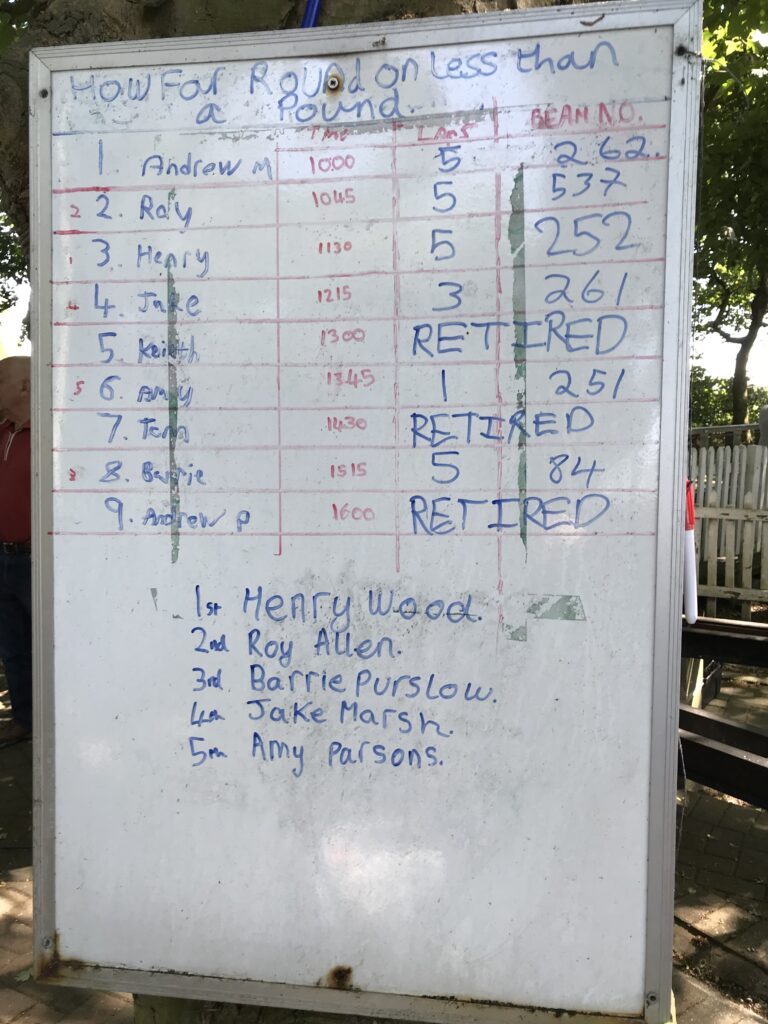 How Far Round on Less than
a Pound.
TIME LAPS BEAM NO.
1 Andrew M 1000 5 262.
2 2. Roy 1045 5 537
1 3. Henry 1130 5 252
4 4. Jake 1215 3 261
5. Keith 1300 RETIRED
5 6. Amy 1345 1 251
7. Tom 1430 RETIRED
3 8. Barrie 1515 5 84
9. Andrew P 1600 RETIRED
1st Henry Wood.
2nd Roy Allen.
3rd Barrie Purslow.
4th Jake Marsh.
5th Amy Parsons.